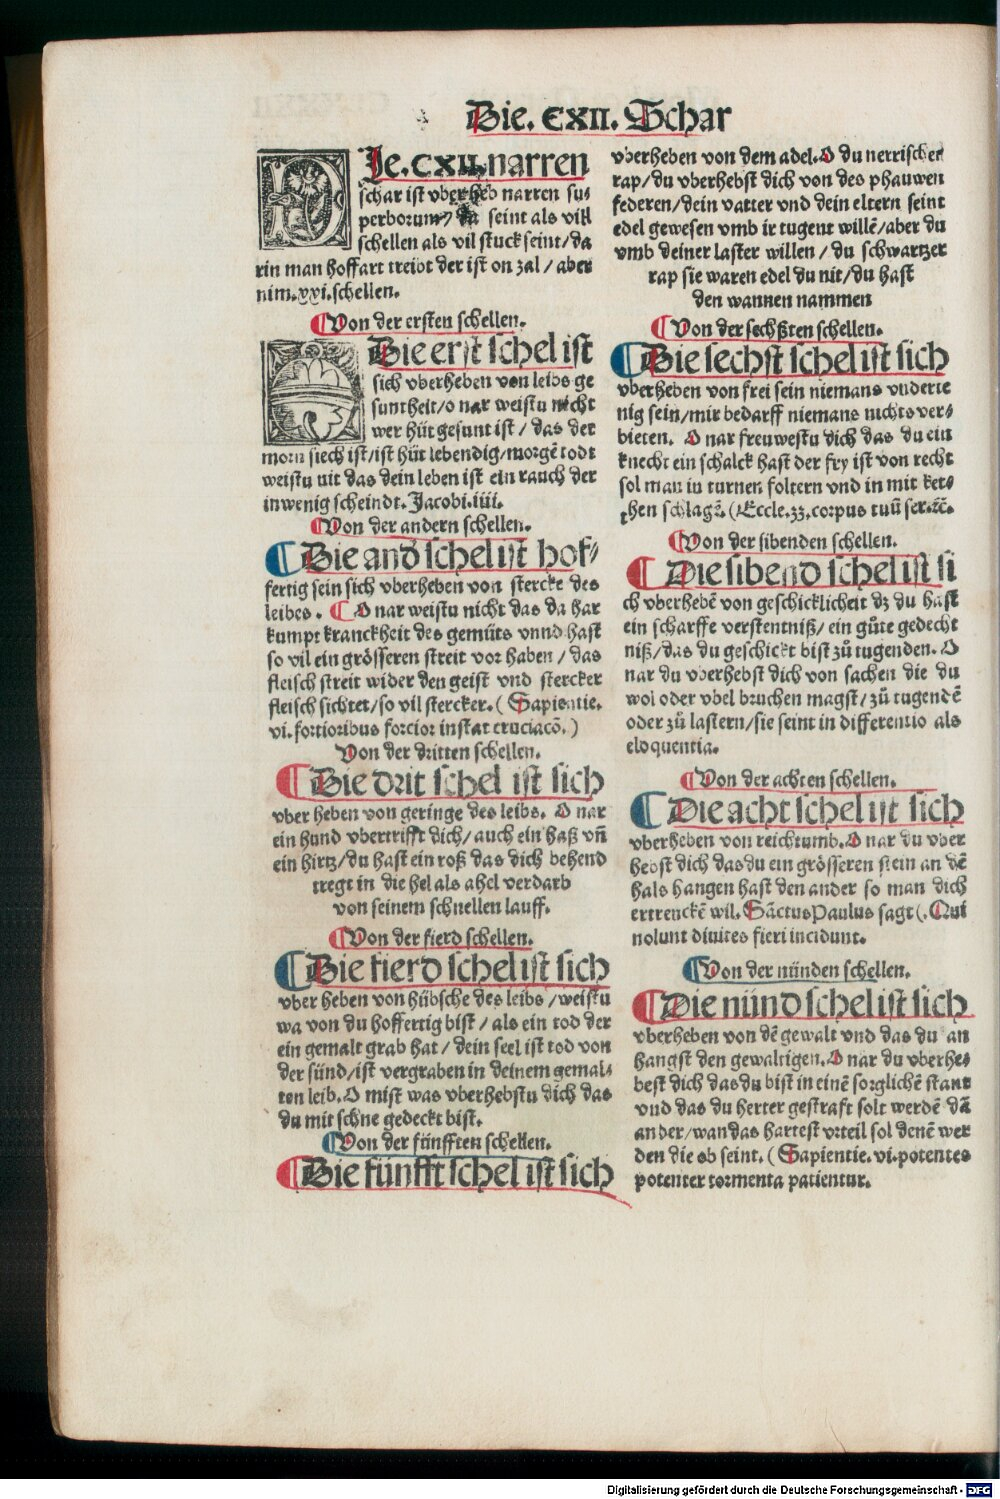 Die. CXII. Schar
DJe. CXII. narren
schar ist vberheb narren su⸗
perborum/ da seint als vill
schellen als vil stuck seint/da
rin man hoffart treibt der ist on zal/aber
nim.xxi.schellen.
¶Von der ersten schellen.
Die erst schel ist
sich vberheben von leibs ge
suntheit/o nar weistu nicht
wer hüt gesunt ist/das der
morn siech ist/ist hüt lebendig/morgē todt
weistu nit das dein leben ist ein rauch der
inwenig scheindt. Jacobi.iiii.
¶Von der andern schellen.
¶Die and schel ist hof⸗
fertig sein sich vberheben von stercke des
leibes. ¶O nar weistu nicht das da har
kumpt kranckheit des gemüts vnnd hast
so vil ein grösseren streit vor haben/das
fleisch streit wider den geist vnd stercker
fleisch sichtet/so vil stercker.(Sapientie.
vi. fortioribus forcior instat cruciacō.)
Von der dritten schellen.
¶Die drit schel ist sich
vber heben von geringe des leibs. O nar
ein hund vbertrifft dich/auch ein haß vñ
ein hirtz/du hast ein roß das dich behend
tregt in die hel als ahel verdarb
von seinem schnellen lauff.
¶Von der fierd schellen.
¶Die fierd schel ist sich
vber heben von hübsche des leibs/weistu
wa von du hoffertig bist/als ein tod der
ein gemalt grab hat/dein seel ist tod von
der sünd/ist vergraben in deinem gemal⸗
ten leib. O mist was vberhebstu dich das
du mit schne gedeckt bist.
¶Von der fünfften schellen.
¶Die fünfft schel ist sich
vberheben von dem adel. O du nerrischer
rap/du vberhebst dich von des phauwen
federen/dein vatter vnd dein eltern seint
edel gewesen vmb ir tugent willē/aber du
vmb deiner laster willen/du schwartzer
rap sie waren edel du nit/du hast
den wannen nammen
¶Von der sechßten schellen.
¶Die sechst schel ist sich
vberheben von frei sein niemans vnderte
nig sein/mir bedarff niemans nichts ver⸗
bieten. O nar freuwestu dich das du ein
knecht ein schalck hast der fry ist von recht
sol man in turnen foltern vnd in mit ket⸗
then schlagē.(Eccle.33.corpus tuū ser.
¶Von der sibenden schellen.
¶Die sibend schel ist si
ch vberhebē von geschicklicheit dz du hast
ein scharffe verstentniß/ein gůte gedecht
niß/das du geschickt bist zů tugenden. O
nar du vberhebst dich von sachen die du
wol oder vbel bruchen magst/zů tugendē
oder zů lastern/sie seint in differentio als
eloquentia.
¶Von der achten schellen.
¶Die acht schel ist sich
vberheben von reichtumb. O nar du vber
hebst dich das du ein grösseren stein an dē
hals hangen hast den ander so man dich
ertrenckē wil. Sāctus Paulus sagt(. Qui
nolunt diuites fieri incidunt.
¶Von der nünden schellen.
¶Die nünd schel ist sich
vberheben von dē gewalt vnd das du an
hangst den gewaltigen. O nar du vberhe⸗
best dich das du bist in einē sorglichē stant
vnd das du herter gestraft solt werdē dā
ander/wan das hartest vrteil sol denē wer
den die ob seint.(Sapientie. vi. potentes
potenter tormenta patientur.
Digitalisierung gefördert durch die Deutsche Forschungsgemeinschaft - DFG